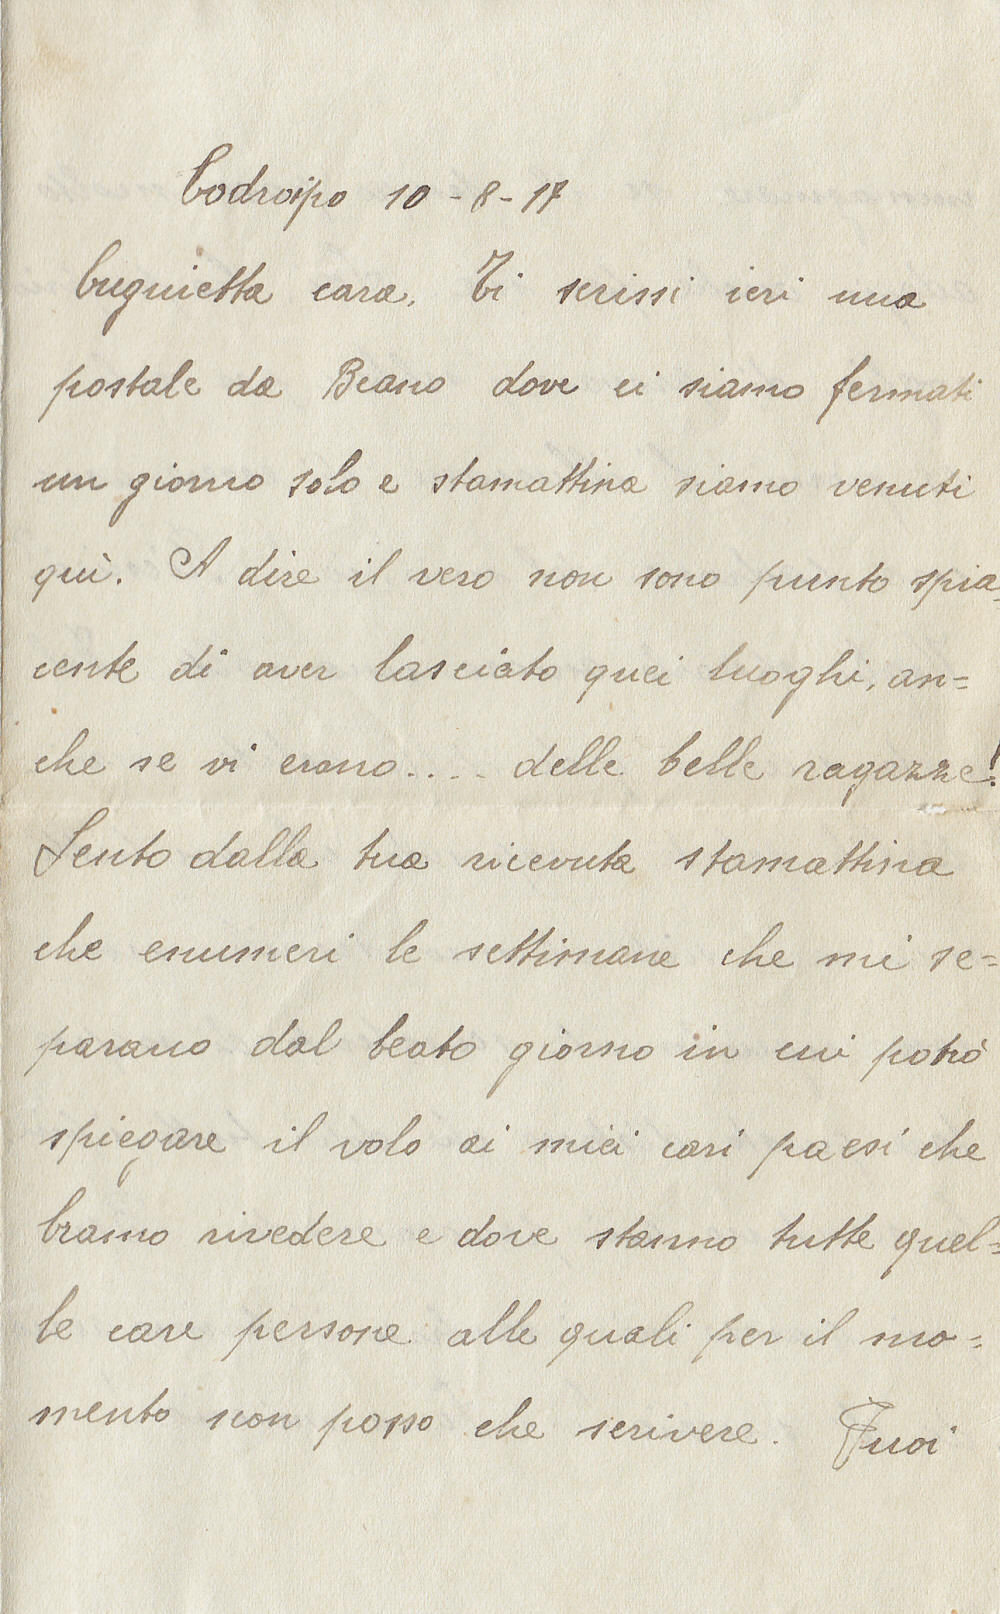 Codroipo 10-8-17
Cuginetta cara. Ti scrissi ieri una
postale da Beano dove ci siamo fermati
un giorno solo e stamattina siamo venuti
quì. A dire il vero non sono punto spia=
cente di aver lasciato quei luoghi, an=
che se vi erano.... delle belle ragazze!
Sento dalla tua ricevuta stamattina
che enumeri le settimane che mi se=
parano dal beato giorno in cui potrò
spiegare il volo ai miei cari paesi che
bramo rivedere e dove stanno tutte quel=
le care persone alle quali per il mo=
mento non posso che scrivere. Tuoi